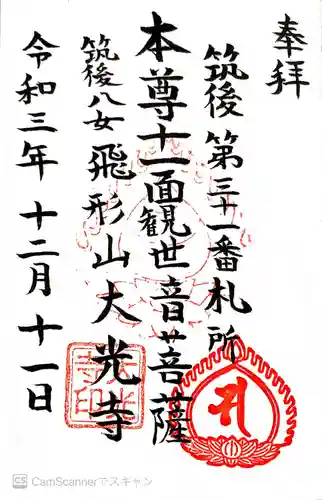 奉拝
筑後第三十一番札所
本尊十一面観世音菩薩
筑後八女飛形山大光寺
令和三年十二月十一日
CS CamScannerでスキャン